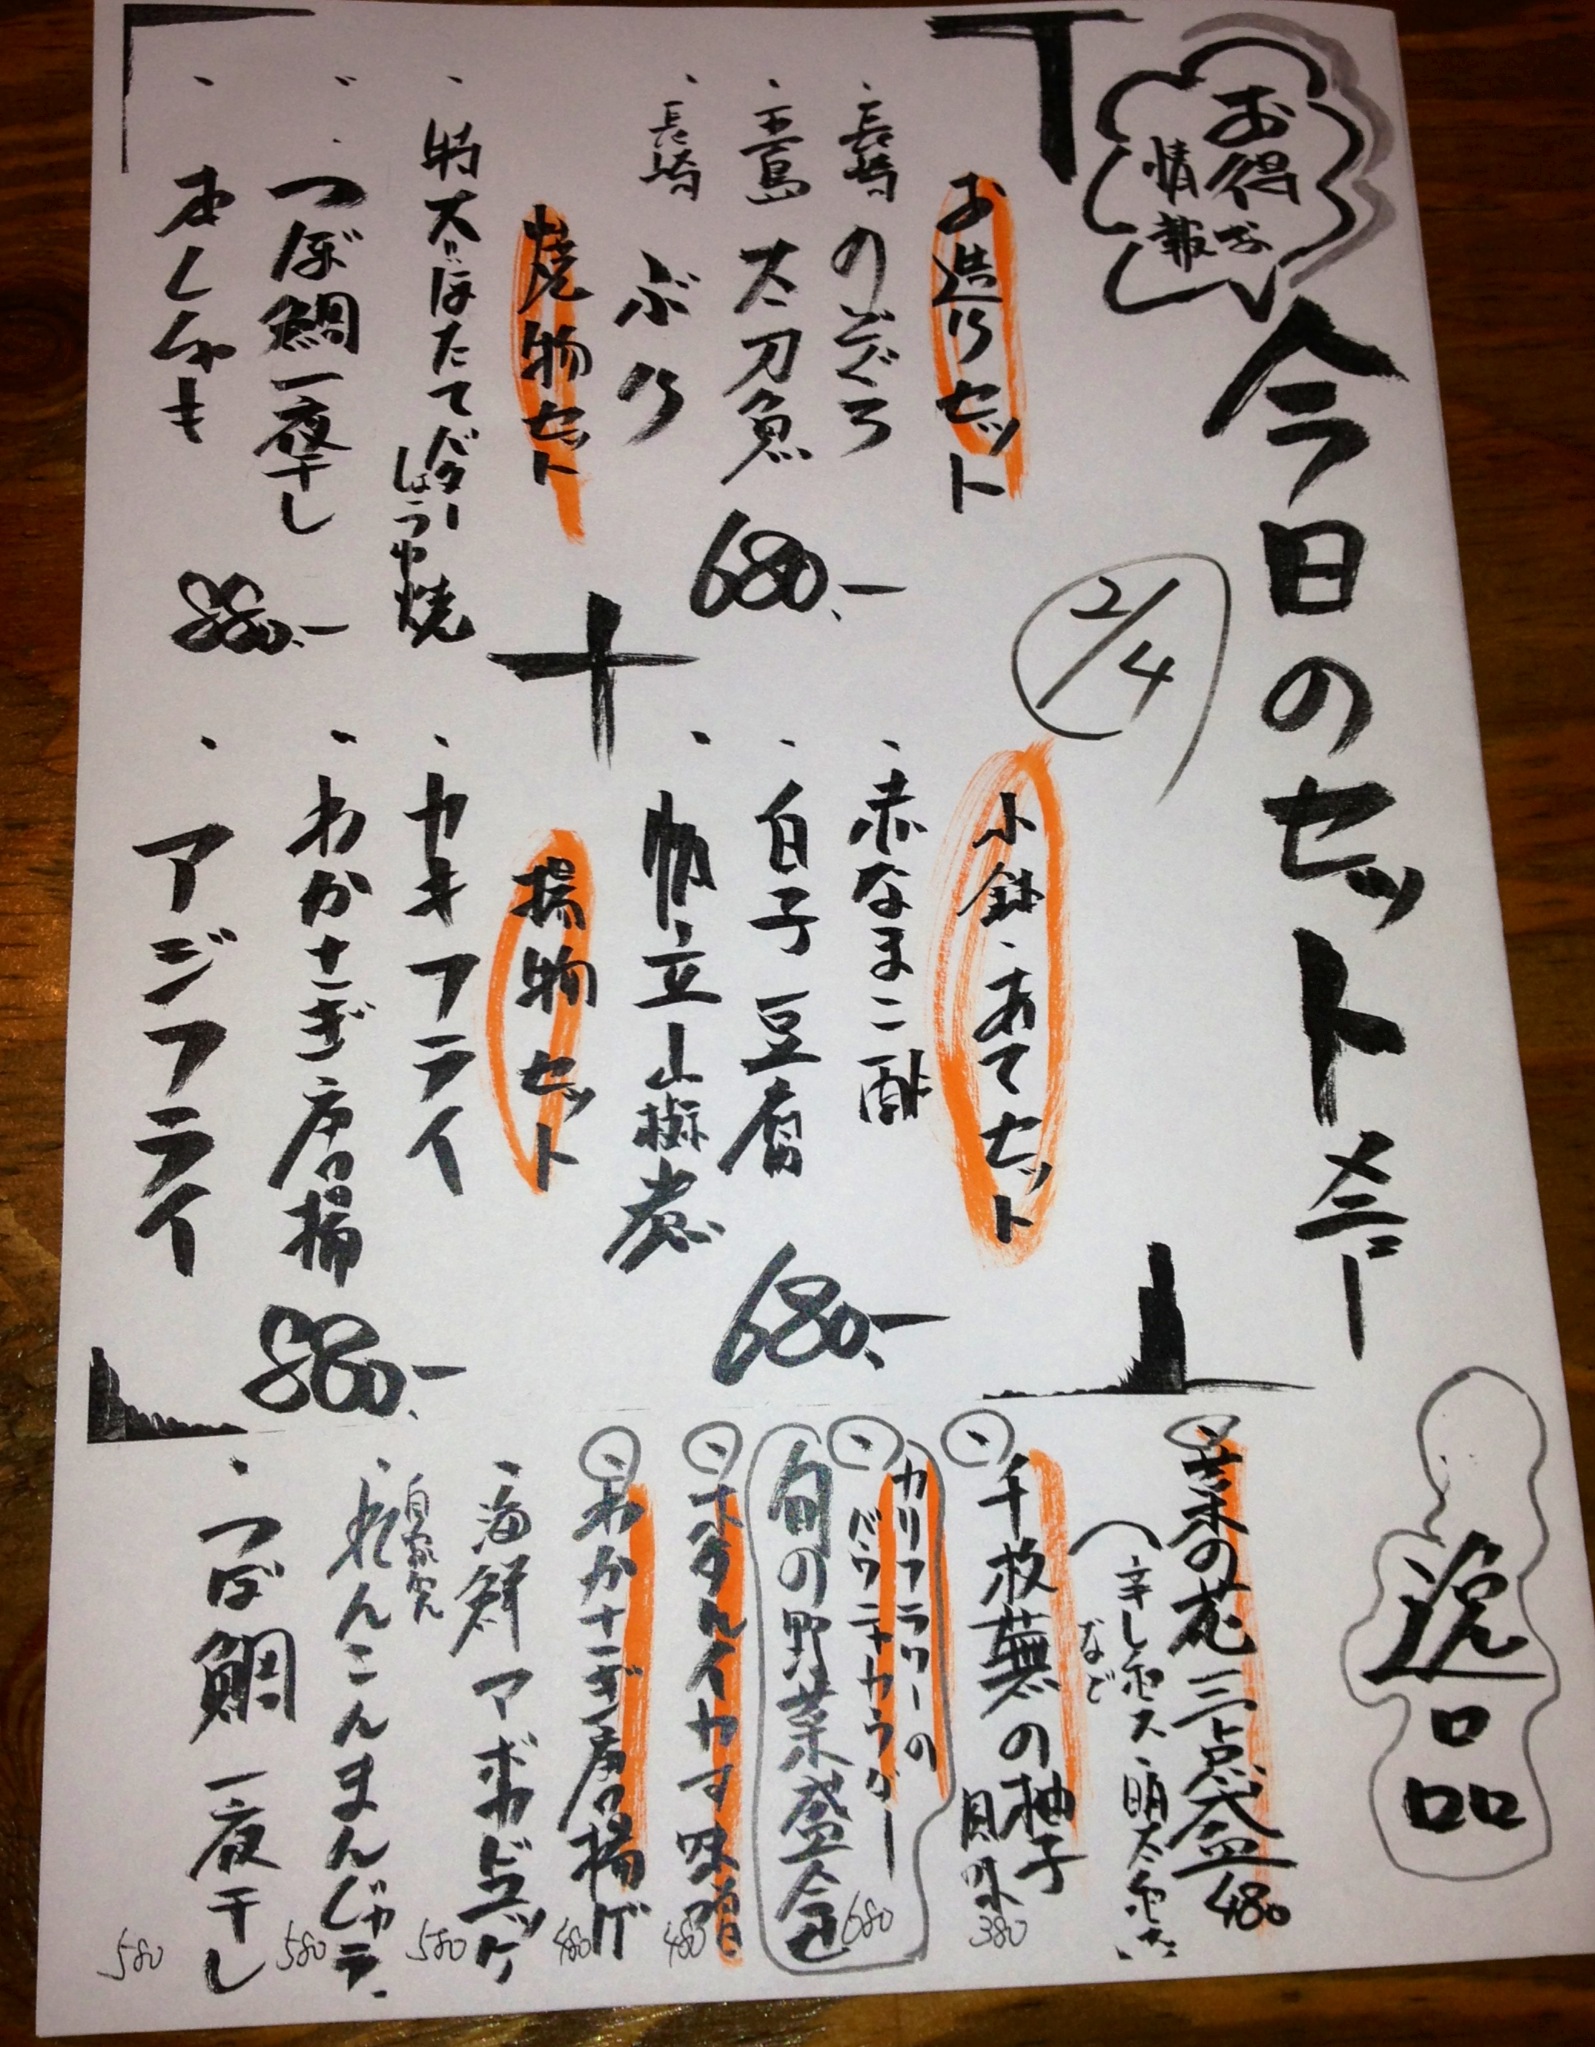 お得な
情報
今日のセットメニュー
2/4
お造りセット
・長崎 のどぐろ
・五島 太刀魚
・長崎 ぶり
680.-
焼物セット
・特大ほたてバター
しょうゆ焼
・つぼ鯛一夜干し
・本ししゃも
880.-
小鉢・あてセット
・赤なまこ酢
・白子豆腐
・帆立山椒煮
680.-
揚物セット
・カキフライ
・わかさぎ唐揚
・アジフライ
880.-
逸品
・菜の花三点盛 480
など
・千枚蕪の柚子
380
・カリフラワーの
バーニャカウダー
旬の野菜盛合 680
・ホタルイカ す味噌 480
・わかさぎ唐揚げ 480
・海鮮アボカドユッケ 580
・れんこんまんじゅう 580
・つぼ鯛一夜干し 580